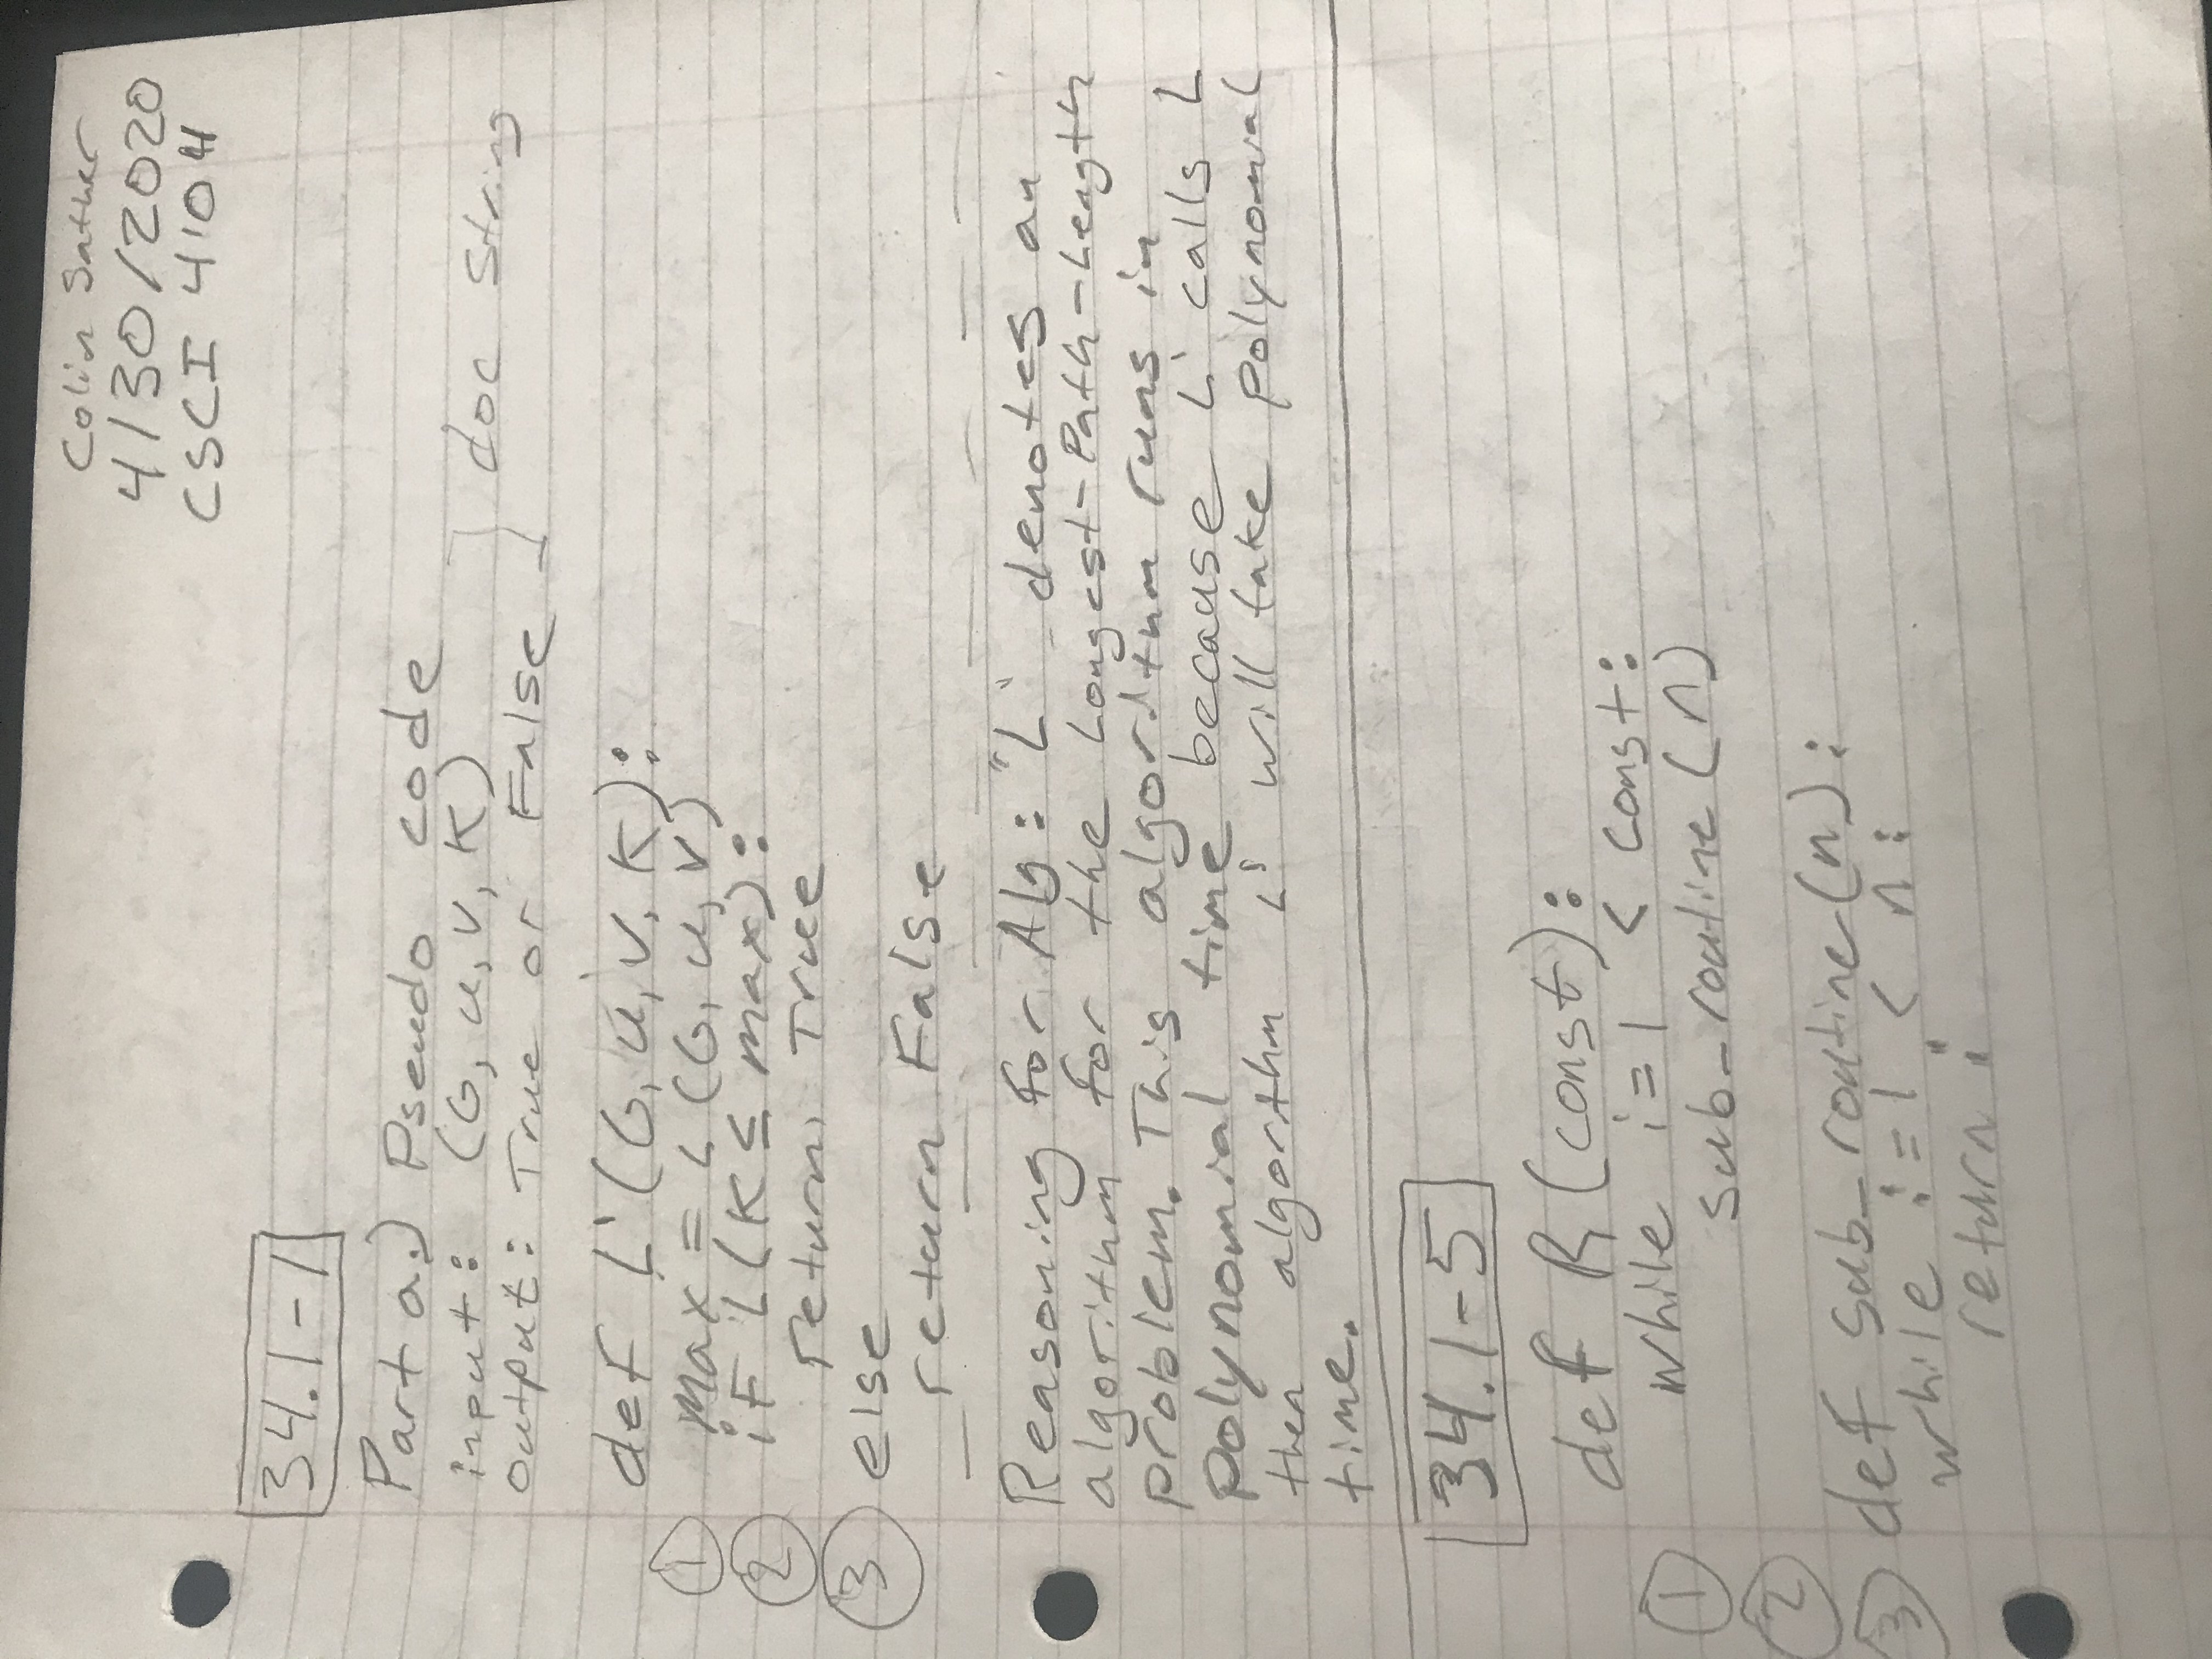 Colin Sather
4/30/2020
CSCI 4104
34.1-1
Part a.) Pseudo code
input: (G, u, v, K)
output: True or False
doc string
def L'(G, u, v, K):
① max = L(G, u, v)
② if L(K ≤ max):
return True
③ else
return False
Reasoning for Alg: "L" denotes an
algorithm for the Longest-Path-Length
problem. This algorithm runs in
polynomial time because L' calls L
then algorithm L' will take polynomial
time.
34.1-5
def R(const):
① while i=1 < const:
sub_routine(n)
②
③ def sub_routine(n):
while i=1 < n:
return i